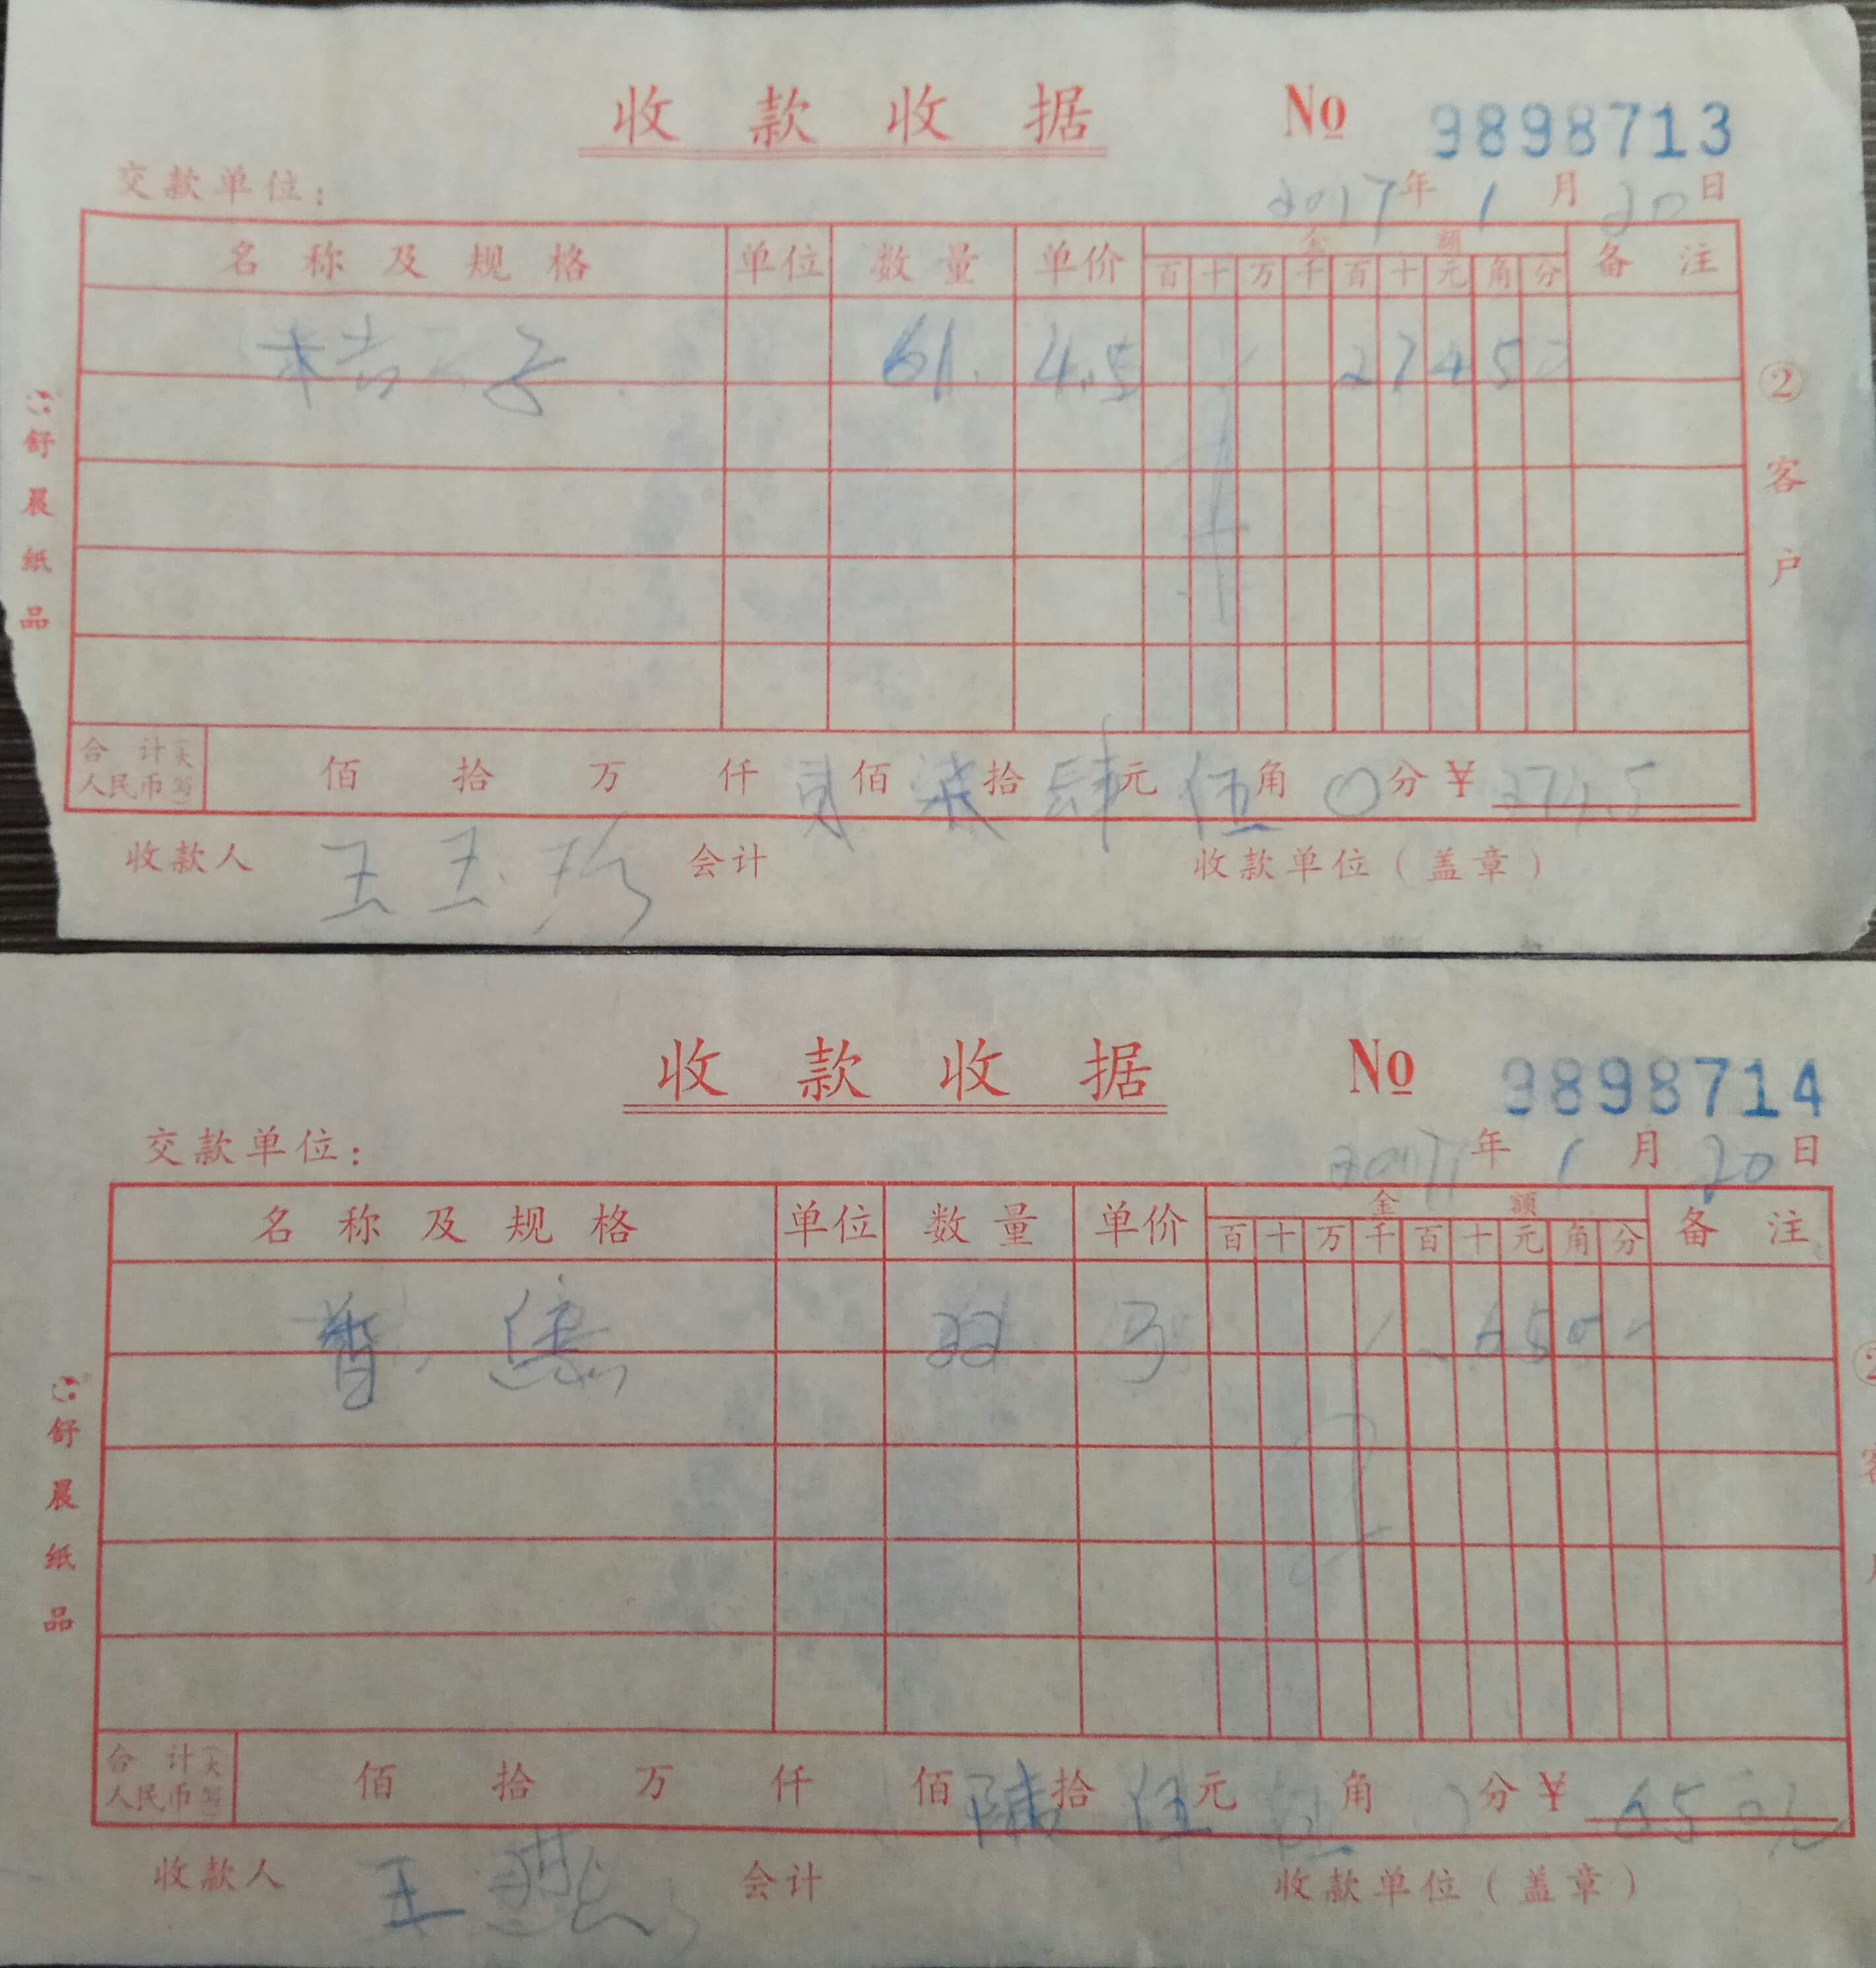 收款收据 No 9898713
交款单位： 2017年1月20日
名称及规格 单位 数量 单价 金额 备注
百十万千百十元角分
61. 4.5 27450
②客户
舒晨纸品
合计(大写)人民币 佰 拾 万 仟 贰佰柒拾肆元伍角0分¥274.5
收款人 王玉珍 会计 收款单位（盖章）
收款收据 No 9898714
交款单位： 年1月20日
名称及规格 单位 数量 单价 金额 备注
百十万千百十元角分
舒晨纸品
合计(大写)人民币 佰 拾 万 仟 佰陆拾伍元 角 分¥65
收款人 王 会计 收款单位（盖章）